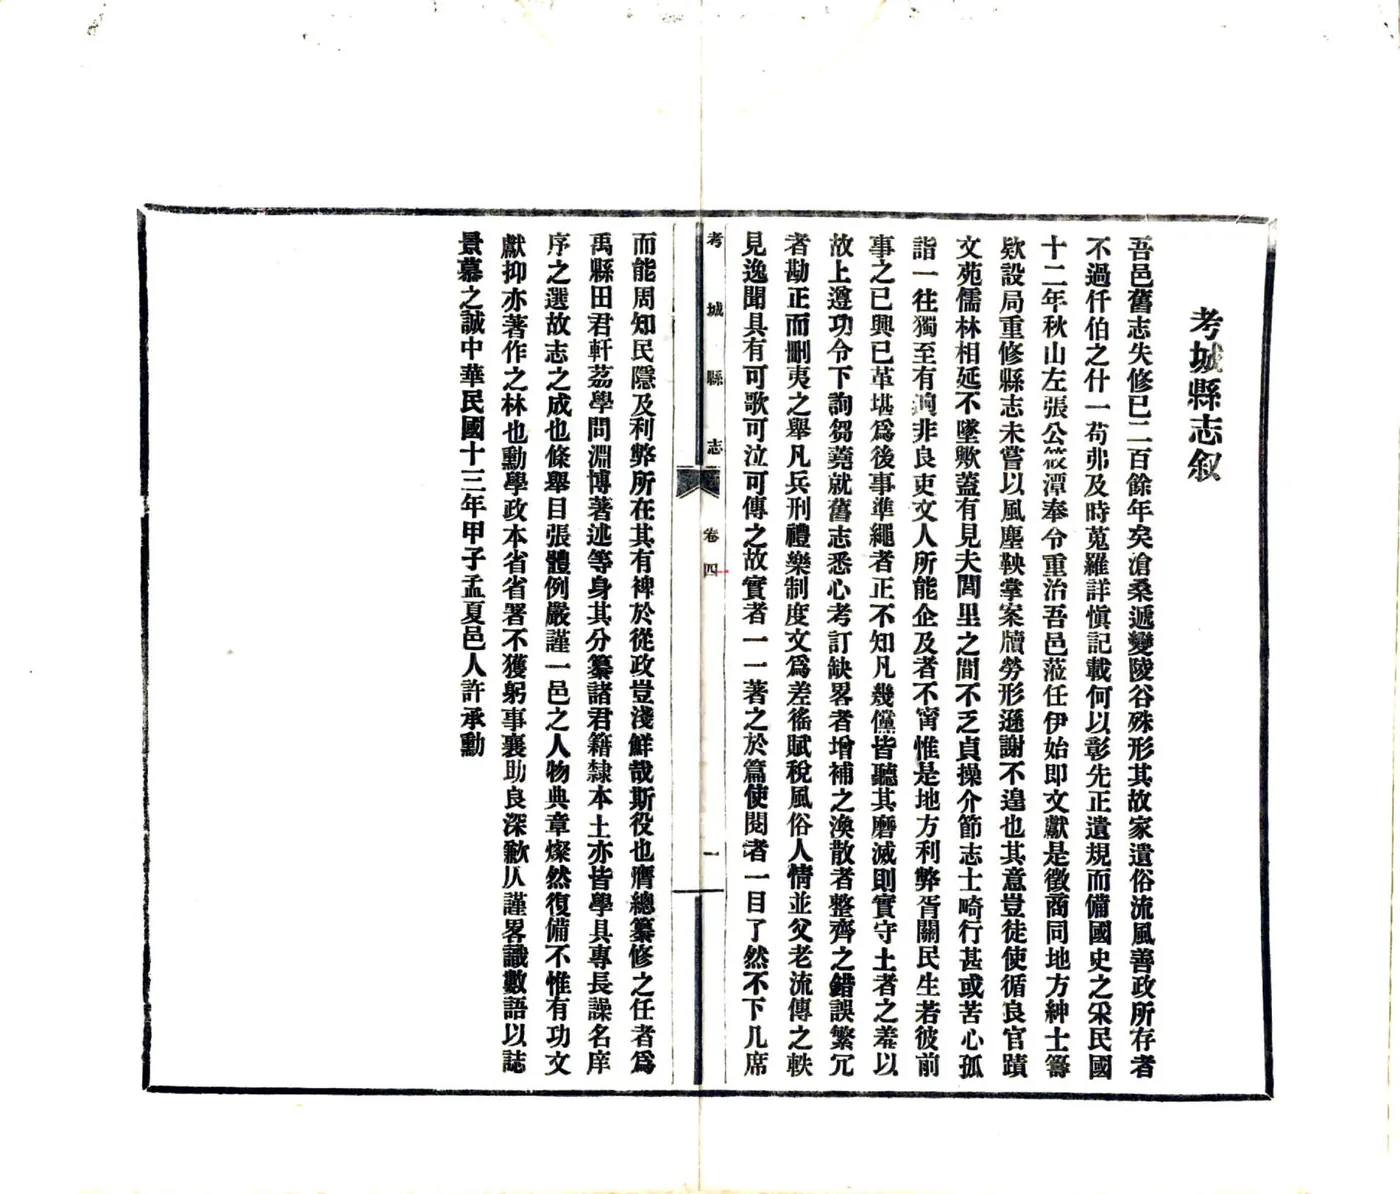 考城縣志叙
吾邑舊志失修已二百餘年矣滄桑遞變陵谷殊形其故家遺俗流風善政所存者
不過仟伯之什一苟弗及時蒐羅詳愼記載何以彰先正遺規而備國史之采民國
十二年秋山左張公筱潭奉令重治吾邑蒞任伊始即文獻是徵商同地方紳士籌
欵設局重修縣志未嘗以風塵鞅掌案牘勞形遜謝不遑也其意豈徒使循良官蹟
文苑儒林相延不墜歟蓋有見夫閭里之間不乏貞操介節志士畸行甚或苦心孤
詣一往獨至有迥非良吏文人所能企及者不甯惟是地方利弊胥關民生若彼前
事之已興已革堪爲後事準繩者正不知凡幾儻皆聽其磨滅則實守土者之羞以
故上遵功令下詢芻蕘就舊志悉心考訂缺畧者增補之渙散者整齊之錯誤繁冗
者勘正而刪夷之舉凡兵刑禮樂制度文爲差徭賦稅風俗人情並父老流傳之軼
見逸聞具有可歌可泣可傳之故實者一一著之於篇使閱者一目了然不下几席
考城縣志
卷四
一
而能周知民隱及利弊所在其有裨於從政豈淺鮮哉斯役也膺總纂修之任者爲
禹縣田君軒荔學問淵博著述等身其分纂諸君籍隸本土亦皆學具專長譟名庠
序之選故志之成也條舉目張體例嚴謹一邑之人物典章燦然復備不惟有功文
獻抑亦著作之林也勳學政本省省署不獲躬事襄助良深歉仄謹畧識數語以誌
景慕之誠中華民國十三年甲子孟夏邑人許承勳